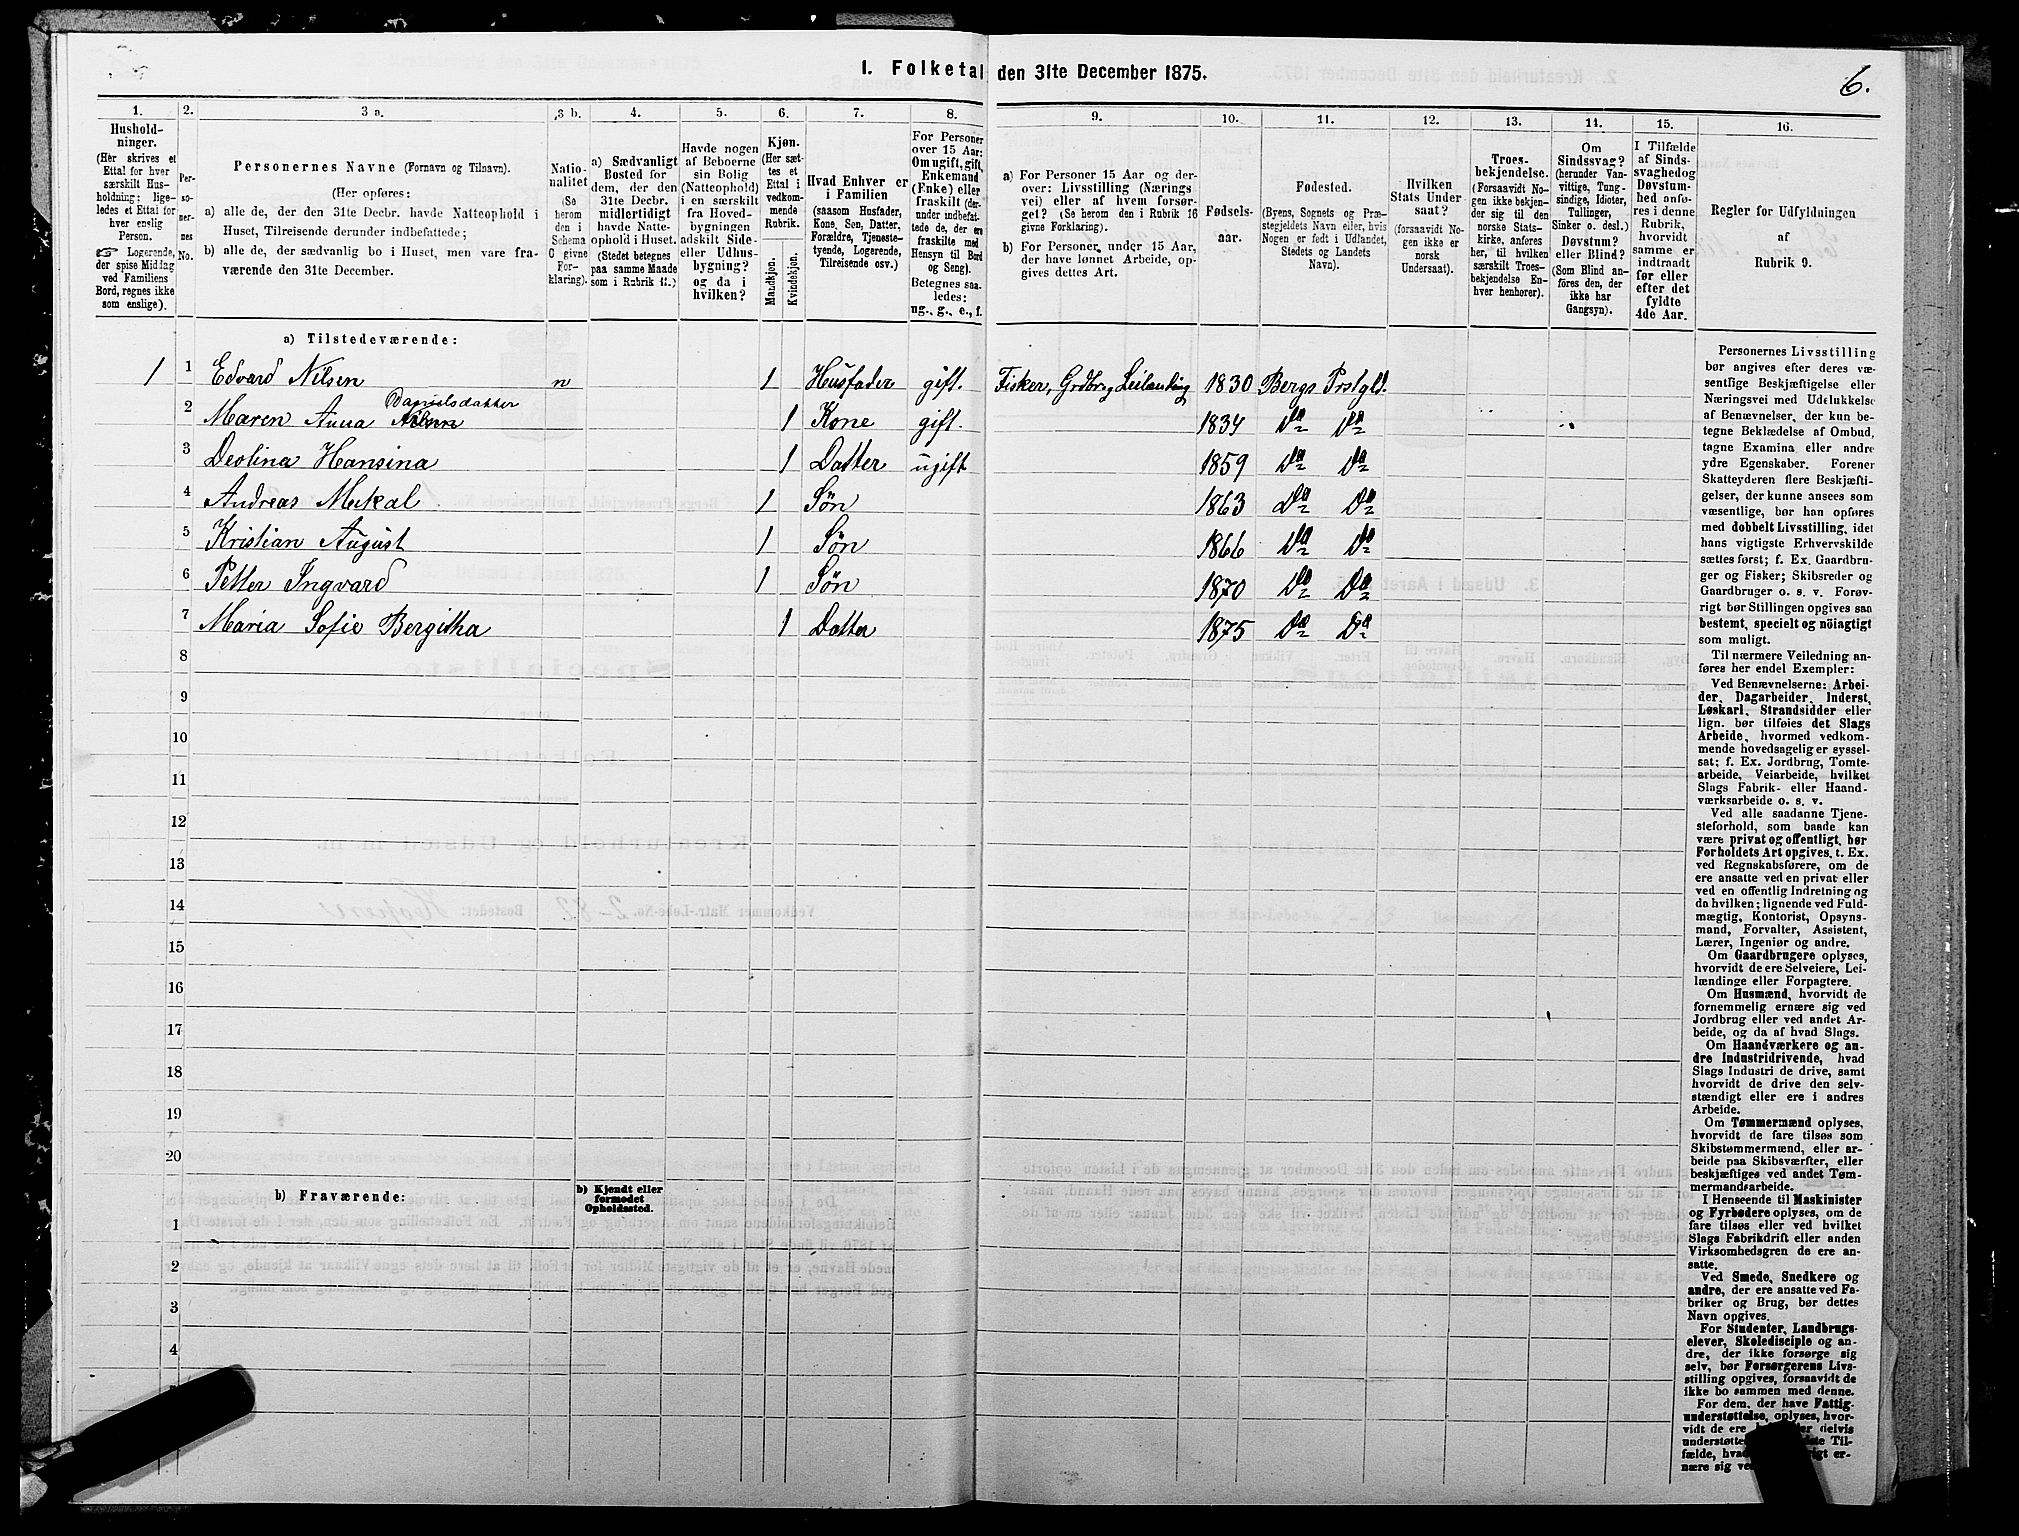 I. Folketal den 31te December 1875.
6.
1. 2. 3 a. 3 b. 4. 5. 6. 7. 8. 9. 10. 11. 12. 13. 14. 15. 16.
Hushold-
ninger.
(Her skrives et
Ettal for hver
særskilt Hus-
holdning; lige-
ledes et Ettal for
hver enslig
Person.
☞ Logerende,
der spise Middag
ved Familiens
Bord, regnes ikke
som enslige).
Per-
so-
ner-
nes
No.
Personernes Navne (Fornavn og Tilnavn).
(Her opføres:
a) alle de, der den 31te Decbr. havde Natteophold i
Huset, Tilreisende derunder indbefattede;
b) alle de, der sædvanlig bo i Huset, men vare fra-
værende den 31te December.
Natio-
nalitet
(Se
herom
den i
Schema
C givne
For-
klaring).
a) Sædvanligt
Bosted for
dem, der den
31te Decbr.
midlertidigt
havde Natte-
ophold i Huset.
(Stedet betegnes
paa samme Maade
som i Rubrik 11.)
Havde nogen
af Beboerne
sin Bolig
(Natteophold)
i en særskilt
fra Hoved-
bygningen
adskilt Side-
eller Udhus-
bygning?
og da i
hvilken?
Kjøn.
(Her sæt-
tes et
Ettal i
vedkom-
mende
Rubrik.
Mandkjøn.
Kvindekjøn.
Hvad Enhver er
i Familien
(saasom Husfader,
Kone, Søn, Datter,
Forældre, Tjeneste-
tyende, Logerende,
Tilreisende osv.)
For Personer
over 15 Aar:
Om ugift, gift,
Enkemand
(Enke) eller
fraskilt (der-
under indbefat-
tede de, der ere
fraskilte med
Hensyn til Bord
og Seng).
Betegnes saa-
ledes:
ug., g., e., f.
a) For Personer 15 Aar og der-
over: Livsstilling (Nærings
vei) eller af hvem forsør-
get? (Se herom den i Rubrik 16
givne Forklaring).
b) For Personer under 15 Aar,
der have lønnet Arbeide, op-
gives dettes Art.
Fødsels-
aar.
Fødested.
(Byens, Sognets og Præ-
stegjeldets Navn eller, hvis
Nogen er født i Udlandet,
Stedets og Landets
Navn).
Hvilken
Stats Under-
saat?
(forsaavidt No-
gen ikke er
norsk
Undersaat).
Troes-
bekjendelse.
(Forsaavidt No-
gen ikke bekjen-
der sig til den
norske Stats-
kirke, anføres
her, til hvilken
særskilt Troes-
bekjendelse En-
hver henhører).
Om
Sindssvag?
(herunder Van-
vittige, Tung-
sindige, Idioter,
Tullinger,
Sinker o. desl.)
Døvstum?
eller Blind?
(Som Blind an-
føres den, der
ikke har
Gangsyn).
I Tilfælde
af Sinds-
svaghed og
Døvstum-
hed anfø-
res i denne
Rubrik,
hvorvidt
samme er
indtraadt
før eller
efter det
fyldte
4de Aar.
Regler for Udfyldningen
af
Rubrik 9.
a) Tilstedeværende:
1 1 Edvard Nilsen n 1 Husfader gift. Fisker, Grdbrug Leilending 1830 Bergs Prstgld.
Danielsdatter
2 Maren Anna Nilsen 1 Kone gift. 1834 Do Do
3 Deolina Hansina 1 Datter ugift 1859 Do Do
4 Andreas Mikal 1 Søn 1863 Do Do
5 Kristian August 1 Søn 1866 Do Do
6 Petter Ingvard 1 Søn 1870 Do Do
7 Maria Sofie Bergitha 1 Datter 1875 Do Do
8
9
10
11
12
13
14
15
16
17
18
19
20
b) Fraværende:
b) Kjendt eller
formodet
Opholdssted.
1
2
3
4
Personernes Livsstilling
bør angives efter deres væ-
sentlige Beskjæftigelse eller
Næringsvei med Udelukkelse
af Benævnelser, der kun be-
tegne Beklædelse af Ombud,
tagne Examina eller andre
ydre Egenskaber. Forener
Skatteyderen flere Beskjæfti-
gelser, der kunne ansees som
væsentlige, bør han opføres
med dobbelt Livsstilling, idet
hans vigtigste Erhvervskilde
sættes først; f. Ex. Gaardbru-
ger og Fisker; Skibsreder og
Gaardbruger o. s. v. Forøv-
rigt bør Stillingen opgives saa
bestemt, specielt og nöiagtigt
som muligt.
Til nærmere Veiledning an-
føres her endel Exempler:
Ved Benævnelserne: Arbei-
der, Dagarbeider, Inderst,
Løskarl, Strandsidder eller
lign. bør tilføies det Slags
Arbeide, hvormed vedkom-
mende hovedsagelig er syssel-
sat; f. Ex. Jordbrug, Tomte-
arbeide, Veiarbeide, hvilket
Slags Fabrik- eller Haand-
værksarbeide o. s. v.
Ved alle saadanne Tjene-
steforhold, som baade kan
være privat og offentligt, bør
Forholdets Art opgives, t. Ex.
ved Regnskabsførere, om de
ere ansatte ved en privat eller
ved en offentlig Indretning og
da hvilken; lignende ved Fuld-
mægtig, Kontorist, Opsyns-
mand, Forvalter, Assistent,
Lærer, Ingeniør og andre.
Om Gaardbrugere oplyses,
hvorvidt de ere Selveiere, Lei-
lændinge eller Forpagtere.
Om Husmænd, hvorvidt de
fornemmelig ernære sig ved
Jordbrug eller ved andet Ar-
beide, og da af hvad Slags.
Om Haandværkere og an-
dre Industridrivende, hvad
Slags Industri de drive, samt
hvorvidt de drive den selv-
stændigt eller ere i andres
Arbeide.
Om Tømmermænd oplyses,
hvorvidt de fare tilsøs som
Skibstømmermænd, eller ar-
beide paa Skibsværfter, eller
beskjæftiges ved andet Tøm-
mermandsarbeide.
I Henseende til Maskinister
og Fyrbødere oplyses, om de
fare tilsøs eller ved hvilket
Slags Fabrikdrift eller anden
Virksomhedsgren de ere an-
satte.
Ved Smede, Snedkere og
andre, der ere ansatte ved Fa-
briker og Brug, bør dettes
Navn opgives.
For Studenter, Landbrugs-
elever, Skoledisciple og an-
dre, der ikke forsørge sig
selv, bør Forsørgerens Livs-
stilling opgives, forsaavidt de
ikke bo sammen med denne.
For dem, der have Fattig-
understøttelse, oplyses, hvor-
vidt de ere delvis
understøttet Til-
fælde, er-
nære sig